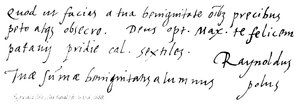 Quod ut facias a tua benignitate oībꝫ precibus
peto atqꝫ obsecro. Deus opt. Max. te felicem
patauij pridie cal. sextiles.
Raynoldus
Tuæ sūmæ benignitatis alumnus polus